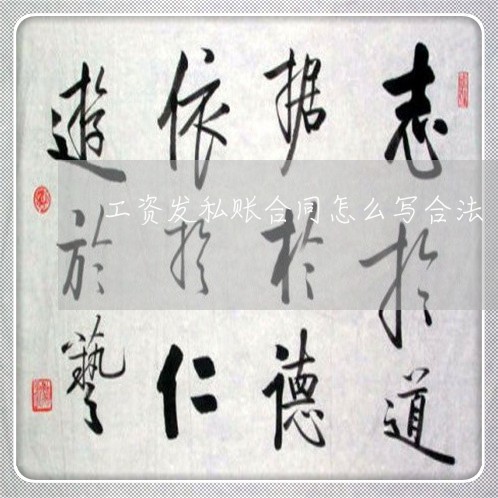 志於道
据於德
依於仁
遊於藝
工资发私账合同怎么写合法